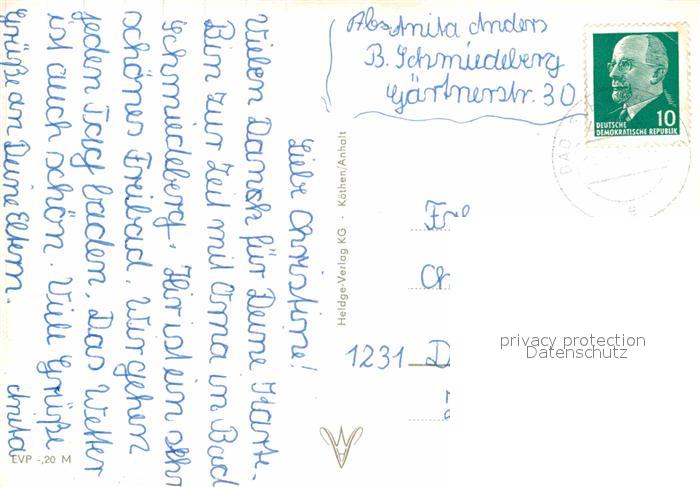 Abs. Anita Anders
B. Schmiedeberg
Gärtnerstr. 30
10
DEUTSCHE
DEMOKRATISCHE REPUBLIK
BAD
Liebe Christine!
Vielen Dank für Deine Karte.
Bin zur Zeit mit Oma in Bad
Schmiedeberg. Hir ist ein sehr
schönes Freibad. Wir gehen
jeden Tag baden. Das Wetter
ist auch schön. Viele Grüße
Grüße an Deine Eltern.
Anita
Heldge-Verlag KG · Köthen/Anhalt
1231 D
privacy protection
Datenschutz
EVP -,20 M